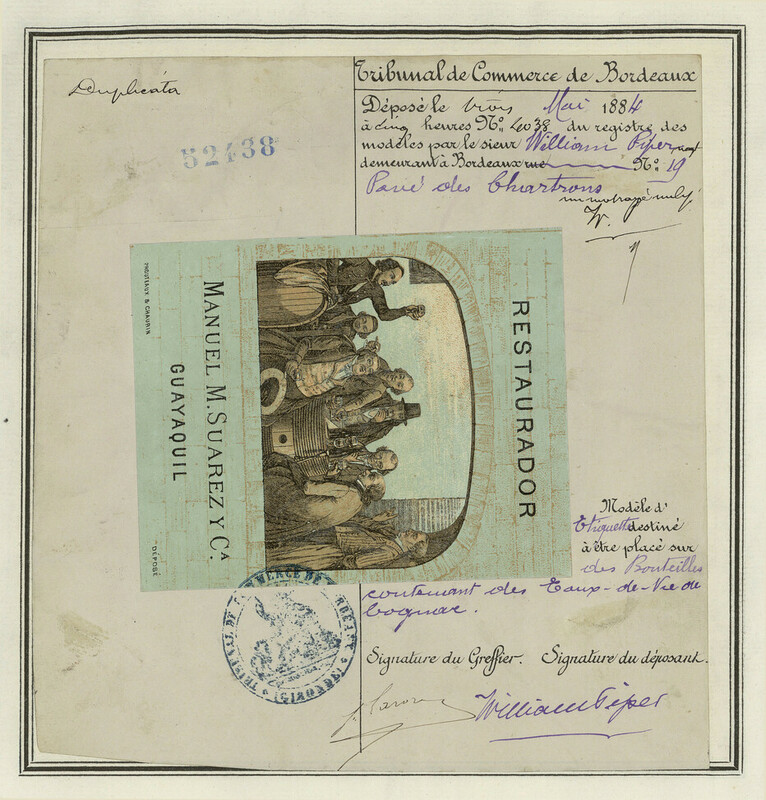 Duplicata
52438
Tribunal de Commerce de Bordeaux
Déposé le trois Mai 1884
à cinq heures N° 4038 du registre des
modèles par le sieur William Piper
demeurant à Bordeaux rue N° 19
Pavé des Chartrons
RESTAURADOR
MANUEL M. SUAREZ Y CA
GUAYAQUIL
PROUTEAUX & CHAURIN
DÉPOSÉ
Modèle d'
Etiquette destiné
à être placé sur
des Bouteilles
contenant des Eaux-de-Vie de
Cognac.
TRIBUNAL DE COMMERCE DE BORDEAUX
(GIRONDE)
Signature du Greffier. Signature du déposant.
William Piper